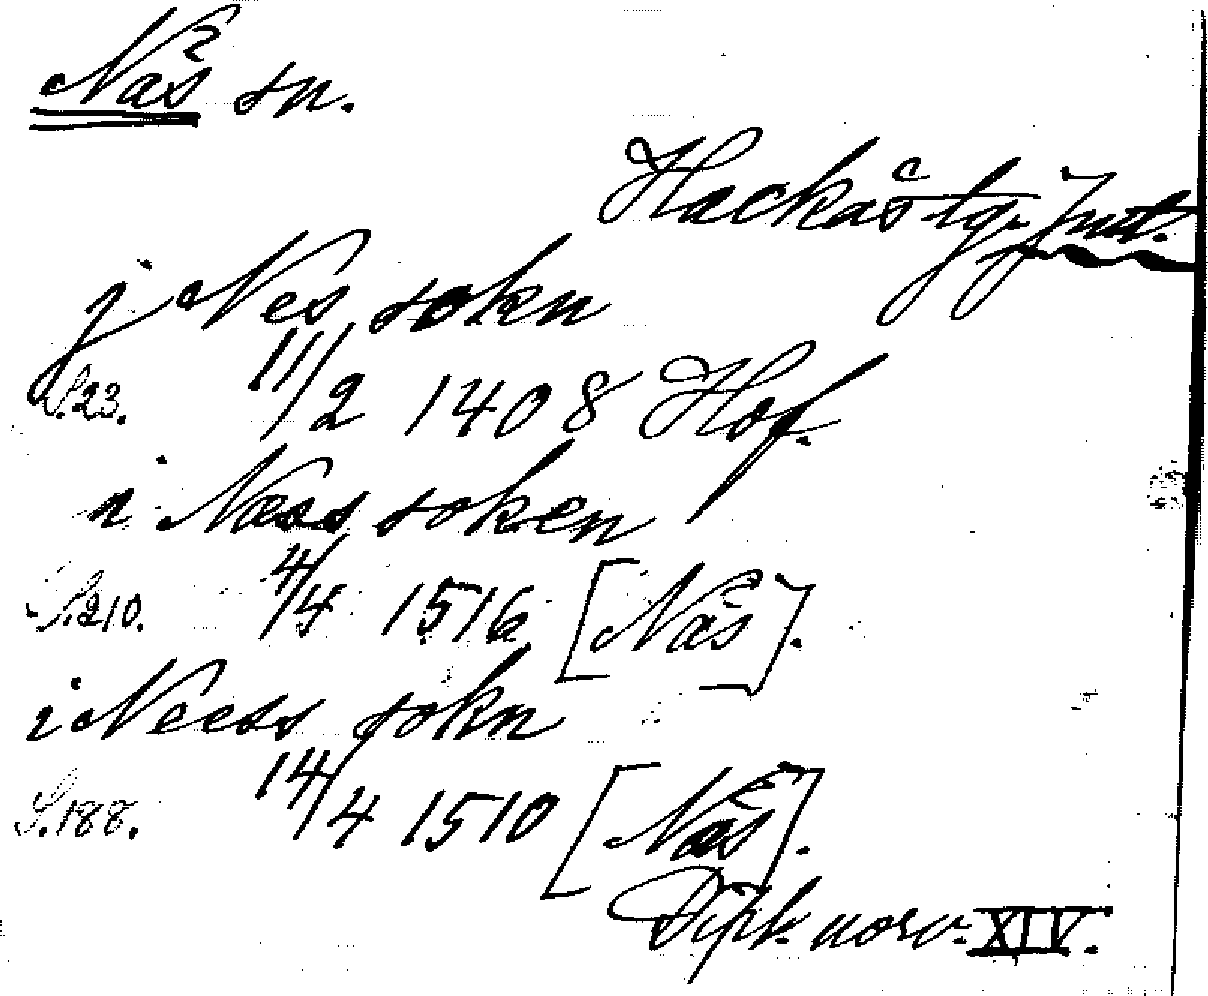 Näs sn.
Hackås tg. Jmt.
j Nes sokn
S.23. 11/2 1408 Hof.
i Næss soken
S.210. 4/4 1516 [Näs].
i Neess sokn
S.188. 14/4 1510 [Näs].
Dipl. norv. XIV.